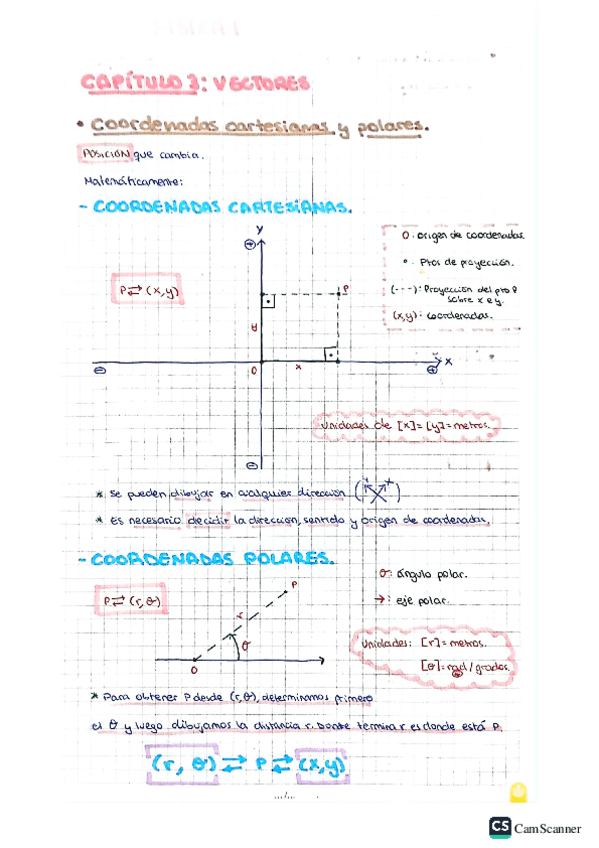 FÍSICA I
CAPÍTULO 3: VECTORES
• Coordenadas cartesianas y polares.
POSICIÓN que cambia.
Matemáticamente:
- COORDENADAS CARTESIANAS.
y
O: origen de coordenadas.
• : Ptos de proyección.
(---): Proyección del pto P
sobre x e y.
(x,y): coordenadas.
P⇄(x,y)
P
y
O
x
x
Unidades de [x]=[y]=metros.
* Se pueden dibujar en cualquier dirección
* Es necesario decidir la dirección, sentido y origen de coordenadas.
- COORDENADAS POLARES.
P⇄(r,θ)
P
r
θ
O
θ: ángulo polar.
→: eje polar.
Unidades: [r]=metros.
[θ]=rad/grados.
* Para obtener P desde (r,θ), determinamos primero
el θ y luego dibujamos la distancia r. Donde termina r es donde está P.
(r, θ) ⇄ P ⇄ (x,y)
.../...
CS CamScanner